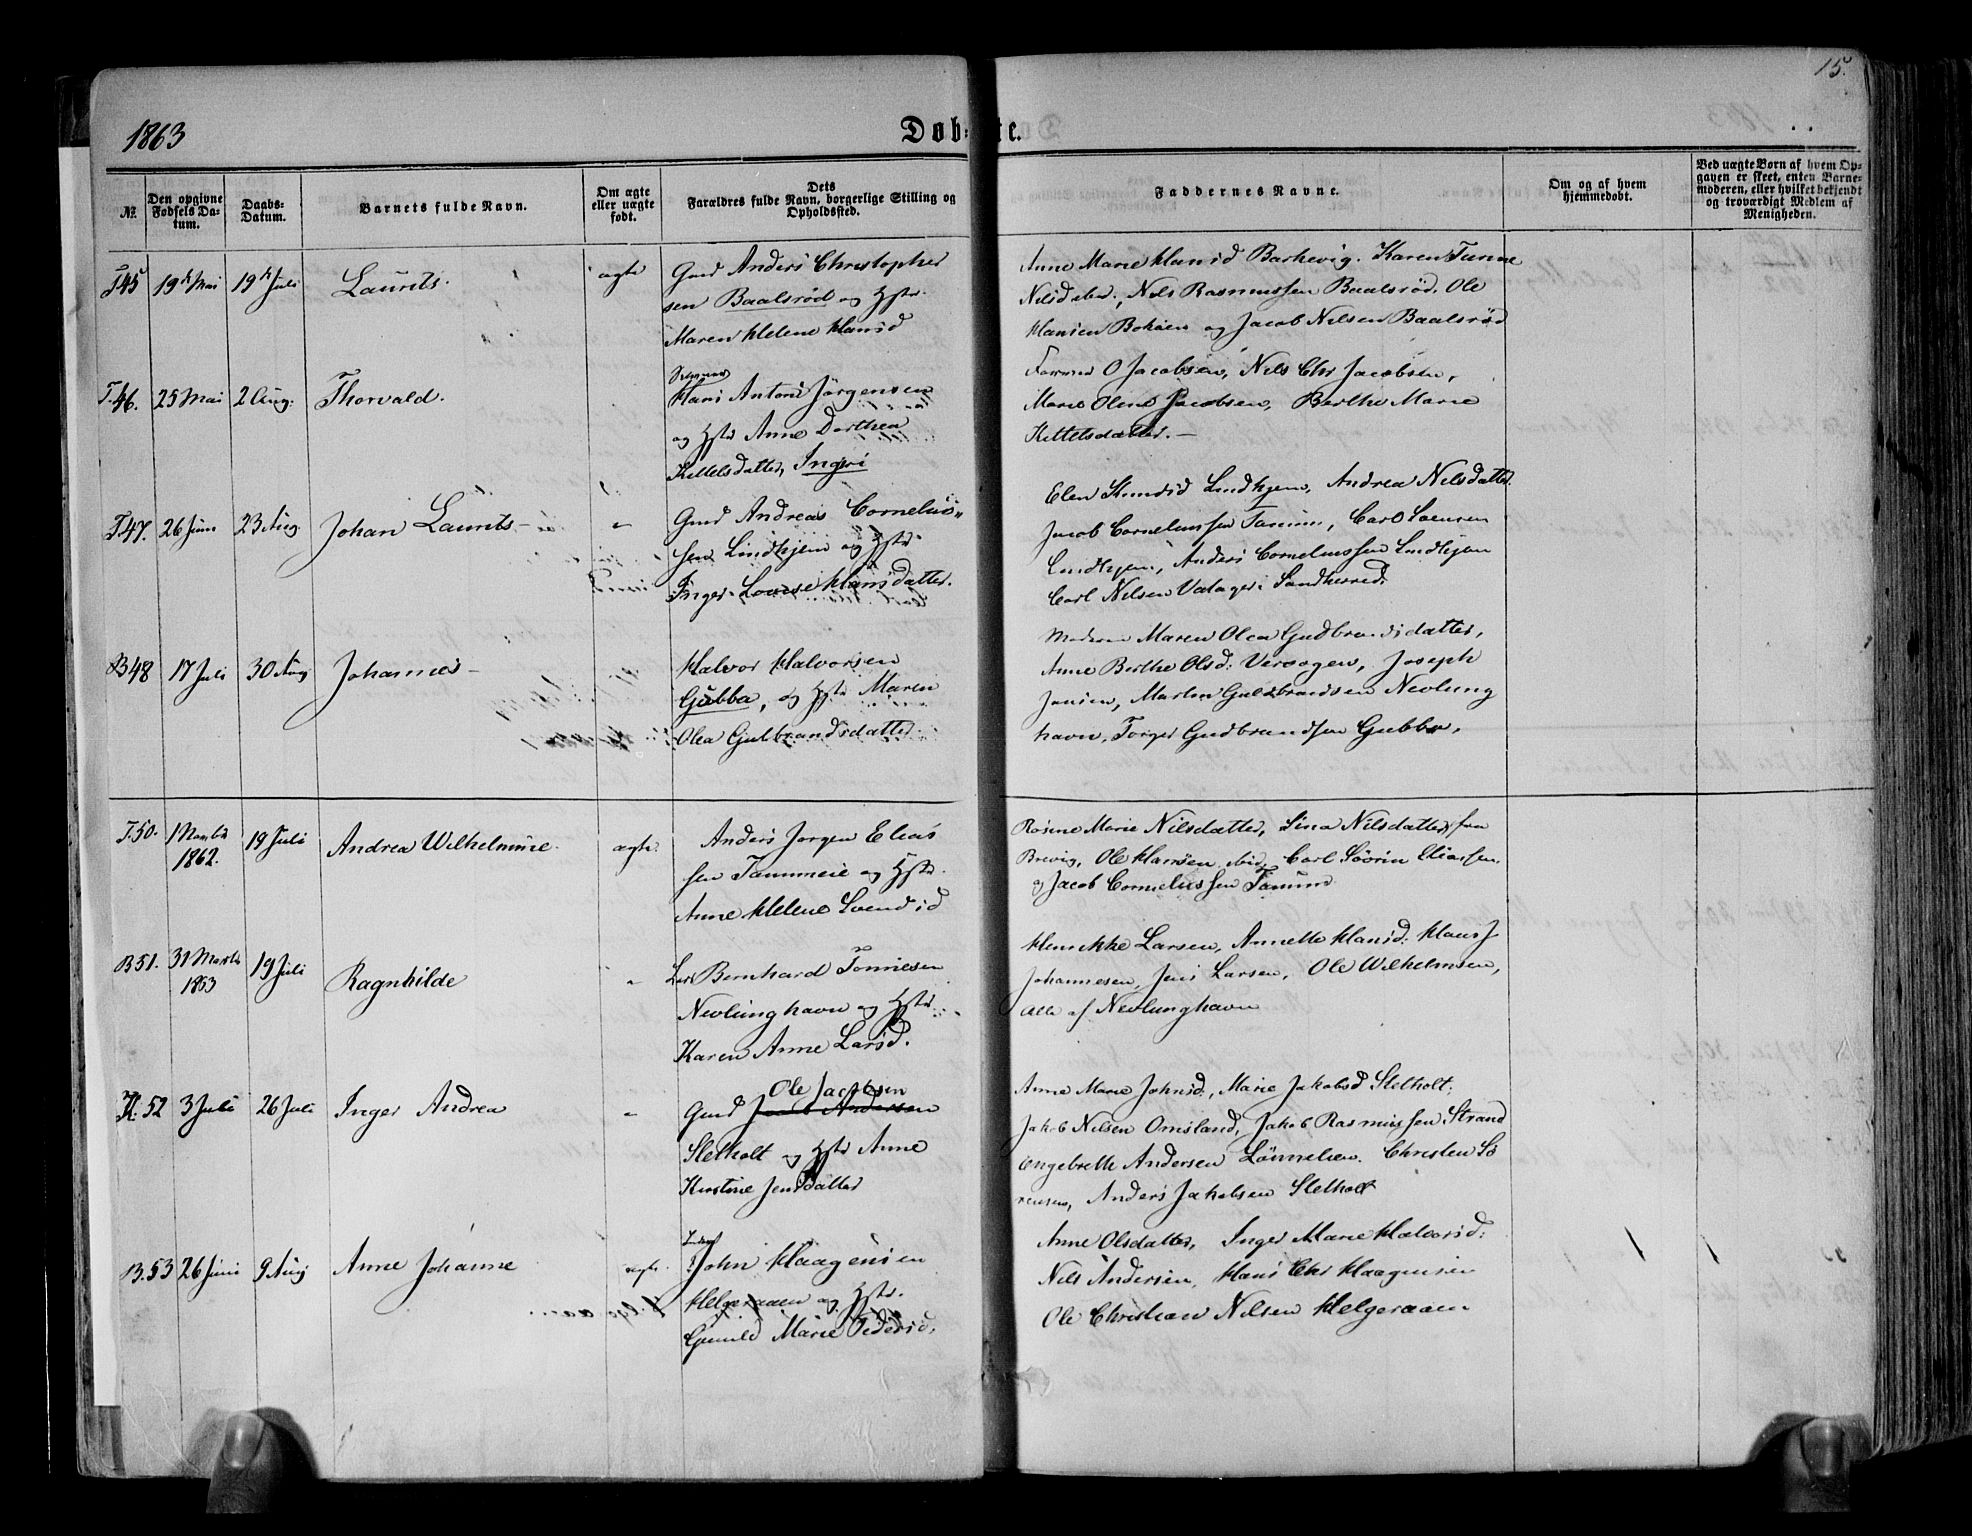 15.
1863
Døb-te.
№
Den opgivne Fødsels Datum.
Daabs-Datum.
Barnets fulde Navn.
Om ægte eller uægte født.
Dets Forældres fulde Navn, borgerlige Stilling og Opholdssted.
Faddernes Navne.
Om og af hvem hjemmedøbt.
Ved uægte Børn af hvem Opgaven er skeet, enten Barnemoderen, eller hvilket bekjendt og troværdigt Medlem af Menigheden.
T45 19de Mai 19de Juli Laurits. ægte Gmd Anders Christopher
sen Baalsrød og Hstr.
Maren Helene Hansd
Anne Marie Hansd Barkevig. Karen
Nilsd ibid., Nils Rasmussen Baalsrød. Ole
Hansen og Jacob Nilsen Baalsrød
T.46. 25 Mai 2 Aug. Thorvald.
Hans Anton Jørgensen
og Hstr Anne Dorthea
Kittelsdatter, Ingeri
O Jacobsen, Nils Chr Jacobsen,
Marie Olene Jacobsen, Berthe Marie
Kittelsdatter.—
T47. 26 Juni 23 Aug Johan Laurits— " Gmd Andreas Cornelius-
sen Lindhjem og Hstr.
Inger Louise Hansdatter.
Elen Lindhjem, Andrea Nilsdatter
Jacob Corneliussen Tanum, Carl Svensen
Lindhjem, Anders Corneliussen Lindhjem
Carl Nilsen Sandherred.
B48 17 Juli 30 Aug Johannes—
Halvor Halvorsen
Gubba, og Hstr Maren
Olea Gulbrandsdatter
Moderen Maren Olea Gudbrandsdatter,
Anne Berthe Olsd: Joseph
Jansen, Martin Guldbrandsen Nevlung
havn, Torger Gudbrandsen Gubba,
T.50. 1 1862. 19 Juli Andrea Wilhelmine. ægte. Anders Jørgen Elias
sen Tammeie og Hstr.
Anne Helene Svendsd
Rosine Marie Nilsdatter, Lina Nilsdatter fra
Brevig, Ole Hansen ibid, Carl Søvrin Eliassen
og Jacob Corneliussen Tanum
B51. 31 Marts 1863 19 Juli Ragnhilde " Bernhard Tønnesen
Nevlunghavn og Hstr.
Karen Anne Larsd.
Henrikke Larsen, Annette Hansd: Hans J
Johannesen, Jens Larsen, Ole Wilhelmsen,
alle af Nevlunghavn
K. 52 3 Juli 26 Juli Inger Andrea "
Ole Jacobsen
Gmd Jacob Andersen
Sletholt og Hstr Anne
Kirstine Jensdatter
Anne Marie Johnsd:, Marie Jakobsd Sletholt.
Jakob Nilsen Omsland, Jakob Rasmussen Strand
Engebreth Andersen Christen Sø
rensen, Anders Jakobsen Sletholt
B.53 26 Juni 9 Aug Anne Johanne ægte. John Haagensen
Helgeraaen og Hstr.
Gunild Marie Pedersd.
Anne Olsdatter, Inger Marie Halvorsd:
Nils Andersen, Hans Chr Haagensen
Ole Christian Nilsen Helgeraaen